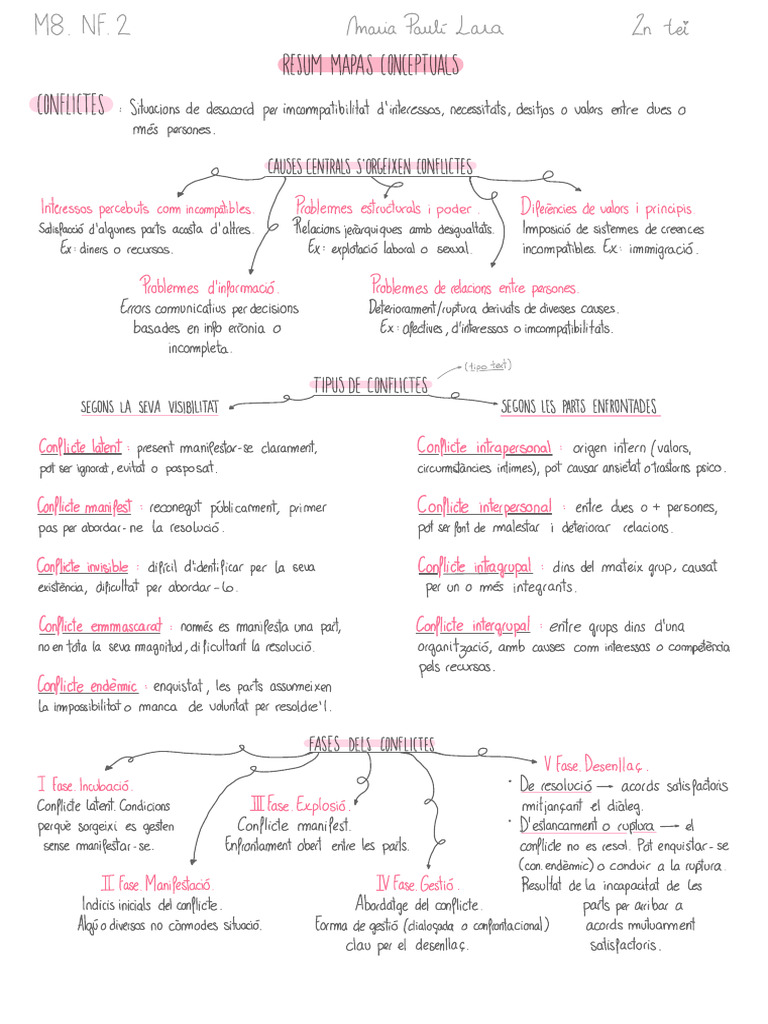 M8. NF. 2
Maria Paulí Lara
2n tei
RESUM MAPAS CONCEPTUALS
CONFLICTES : Situacions de desacord per imcompatibilitat d'interessos, necessitats, desitjos o valors entre dues o
més persones.
CAUSES CENTRALS S'ORGEIXEN CONFLICTES
Interessos percebuts com incompatibles.
Satisfacció d'algunes parts acosta d'altres.
Ex: diners o recursos.
Problemes estructurals i poder.
Relacions jeràrquiques amb desgualtats.
Ex: explotació laboral o sexual.
Diferències de valors i principis.
Imposició de sistemes de creences
incompatibles. Ex: immigració.
Problemes d'informació.
Errors comunicatius per decisions
basades en info errònia o
incompleta.
Problemes de relacions entre persones.
Deteriorament/ruptura derivats de diverses causes.
Ex: afectives, d'interessos o imcompatibilitats.
TIPUS DE CONFLICTES
(tipo text)
SEGONS LA SEVA VISIBILITAT
Conflicte latent : present manifestar-se clarament,
pot ser ignorat, evitat o posposat.
Conflicte manifest : reconegut públicament, primer
pas per abordar-ne la resolució.
Conflicte invisible : difícil d'identificar per la seva
existència, dificultat per abordar-lo.
Conflicte emmascarat : només es manifesta una part,
no en tota la seva magnitud, dificultant la resolució.
Conflicte endèmic : enquistat, les parts assumeixen
la impossibilitat o manca de voluntat per resoldre'l.
SEGONS LES PARTS ENFRONTADES
Conflicte intrapersonal : origen intern (valors,
circumstàncies intimes), pot causar ansietat o trastorns psico.
Conflicte interpersonal : entre dues o + persones,
pot ser font de malestar i deteriorar relacions.
Conflicte intragrupal : dins del mateix grup, causat
per un o més integrants.
Conflicte intergrupal : entre grups dins d'una
organització, amb causes com interessos o competència
pels recursos.
FASES DELS CONFLICTES
I Fase. Incubació.
Conflicte latent. Condicions
perquè sorgeixi es gesten
sense manifestar-se.
II Fase. Manifestació.
Indicis inicials del conflicte.
Algú o diversos no còmodes situació.
III Fase. Explosió.
Conflicte manifest.
Enfrontament obert entre les parts.
IV Fase. Gestió.
Abordatge del conflicte.
Forma de gestió (dialogada o confrontacional)
clau per el desenllaç.
V Fase. Desenllaç.
• De resolució → acords satisfactoris
mitjançant el diàleg.
• D'estancament o ruptura → el
conflicte no es resol. Pot enquistar-se
(con. endèmic) o conduir a la ruptura.
Resultat de la incapacitat de les
parts per arribar a
acords mutuamment
satisfactoris.